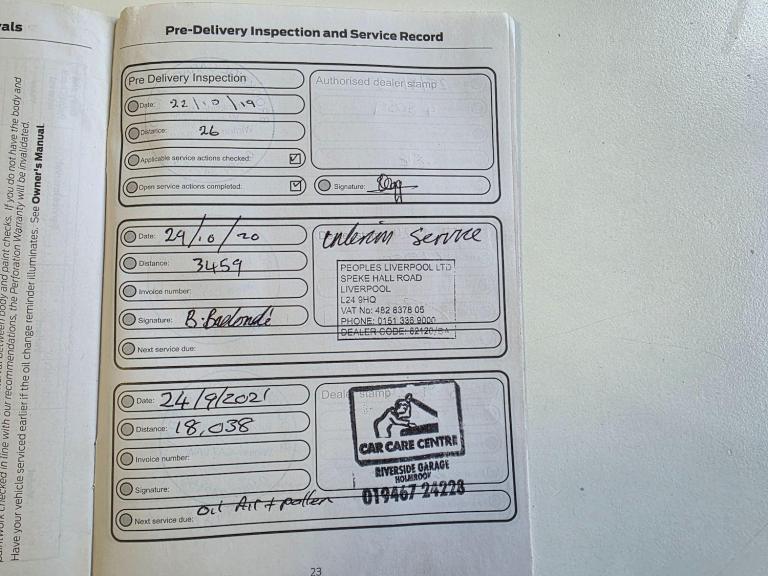 vals
Pre-Delivery Inspection and Service Record
Pre Delivery Inspection
Authorised dealer stamp
Date: 22/10/19
Distance: 26
Applicable service actions checked: ☑
Open service actions completed: ☑
Signature:
Date: 29/10/20
Interim Service
Distance: 3459
Invoice number:
Signature:
PEOPLES LIVERPOOL LTD
SPEKE HALL ROAD
LIVERPOOL
L24 9HQ
VAT No: 482 8378 05
PHONE: 0151 336 9000
DEALER CODE: 62120/SA
Next service due:
Date: 24/9/2021
Dealer stamp
Distance: 18,038
Invoice number:
Signature:
CAR CARE CENTRE
RIVERSIDE GARAGE
HOLMROOK
019467 24228
Oil Air + pollen
Next service due:
23
body and paint checks. If you do not have the body and
paintwork checked in line with our recommendations, the Perforation Warranty will be invalidated.
Have your vehicle serviced earlier if the oil change reminder illuminates. See Owner's Manual